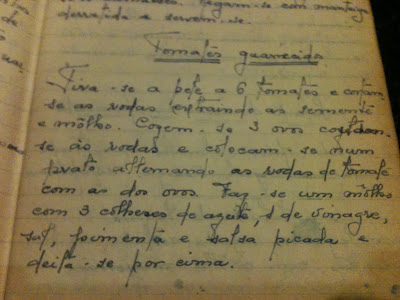 Regam-se com manteiga
derretida e servem-se.
Tomates guarnecidos
Tira-se a pele a 6 tomates e cortam-
se as rodas extraindo as sementes
e môlho. Cozem-se 3 ovos cortam-
se ás rodas e colocam-se num
prato alternando as rodas de tomate
com as dos ovos Faz-se um môlho
com 3 colheres de azeite, 1 de vinagre,
sal, pimenta e salsa picada e
deita-se por cima.